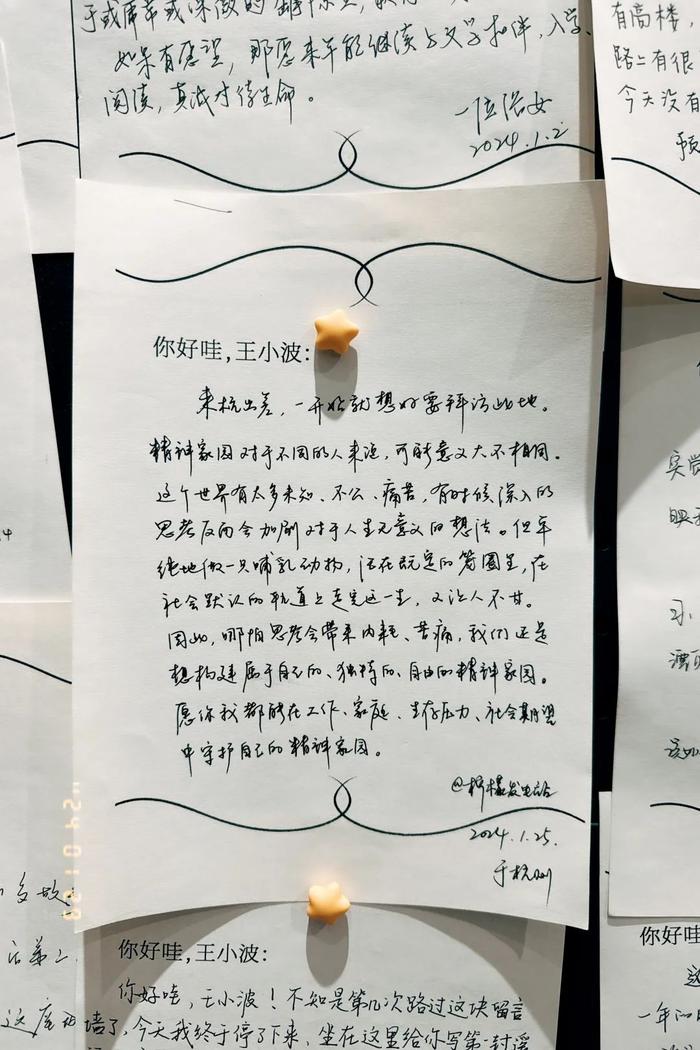 如果有愿望，那愿来年能继续与文学相伴，入学、
阅读，真诚对待生命。
2024.1.2
有高楼
路上有很
今天没有
你好哇,王小波:
来杭出差，一开始就想好要拜访此地。
精神家园对于不同的人来说，可能意义大不相同。
这个世界有太多未知、不公、痛苦，有时候深入的
思考反而会加剧对于人生无意义的想法。但单
纯地做一只哺乳动物，活在既定的范围里，在
社会默认的轨道上走完这一生，又让人不甘。
因此，哪怕思考会带来内耗、苦痛，我们还是
想构建属于自己的、独特的、自由的精神家园。
愿你我都能在工作、家庭、生存压力、社会期望
中守护自己的精神家园。
@柠檬发电站
2024.1.25.
于杭州
'24 01 30
你好哇,王小波:
你好哇，王小波！不知是第几次路过这块留言
墙了，今天我终于停了下来，坐在这里给你写第一封
你好哇
这
一年